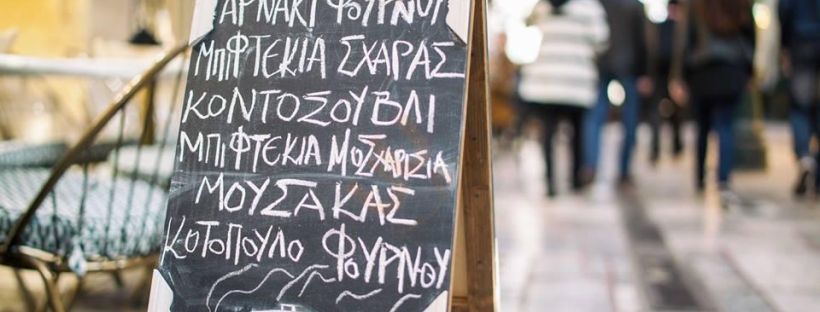 ΑΡΝΑΚΙ ΦΟΥΡΝΟΥ
ΜΠΙΦΤΕΚΙΑ ΣΧΑΡΑΣ
ΚΟΝΤΟΣΟΥΒΛΙ
ΜΠΙΦΤΕΚΙΑ ΜΟΣΧΑΡΙΣΙΑ
ΜΟΥΣΑΚΑΣ
ΚΟΤΟΠΟΥΛΟ ΦΟΥΡΝΟΥ